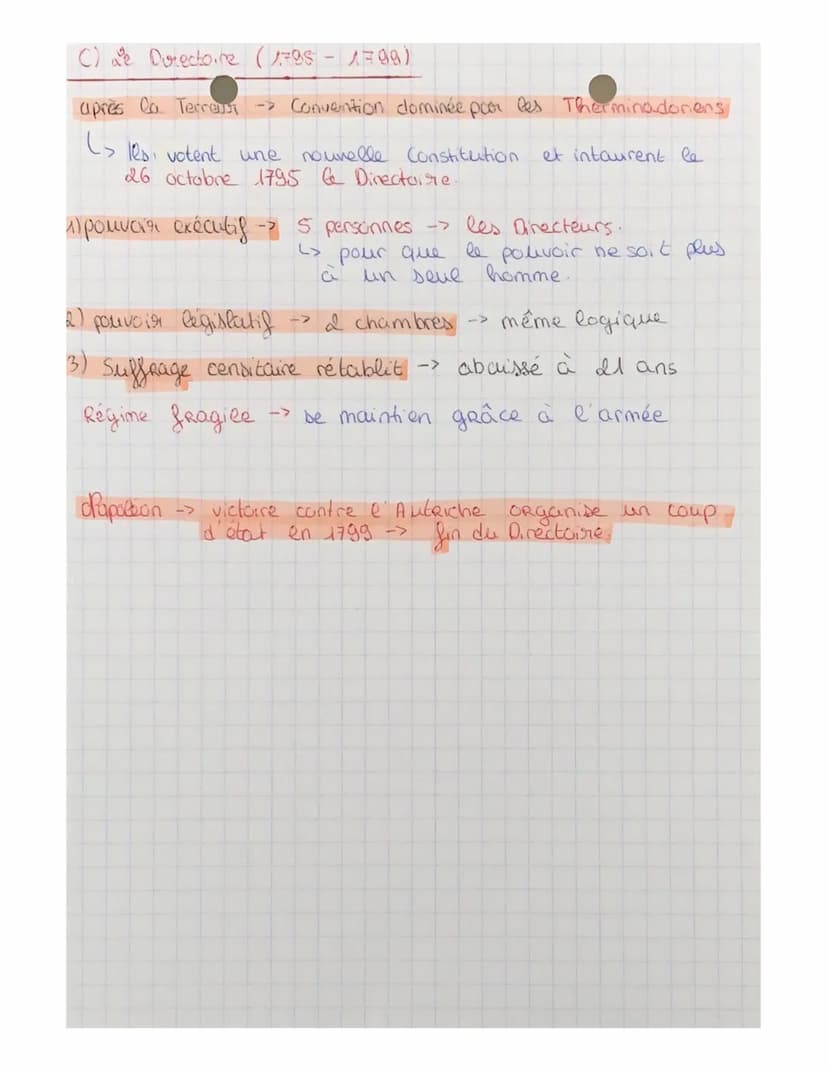 C) Le Directoire (1795 - 1799)
après la Terreur -> Convention dominée par les Therminadoriens
↳ Ils votent une nouvelle Constitution et intaurent le
26 octobre 1795 le Directoire.
1) pouvoir exécutif -> 5 personnes -> les Directeurs.
↳ pour que le pouvoir ne soit plus
à un seul homme.
2) pouvoir législatif -> 2 chambres -> même logique
3) Suffrage censitaire rétablit -> abaissé à 21 ans
Régime fragile -> se maintien grâce à l'armée
Napoléon -> victoire contre l'Autriche organise un coup
d'état en 1799 -> fin du Directoire.